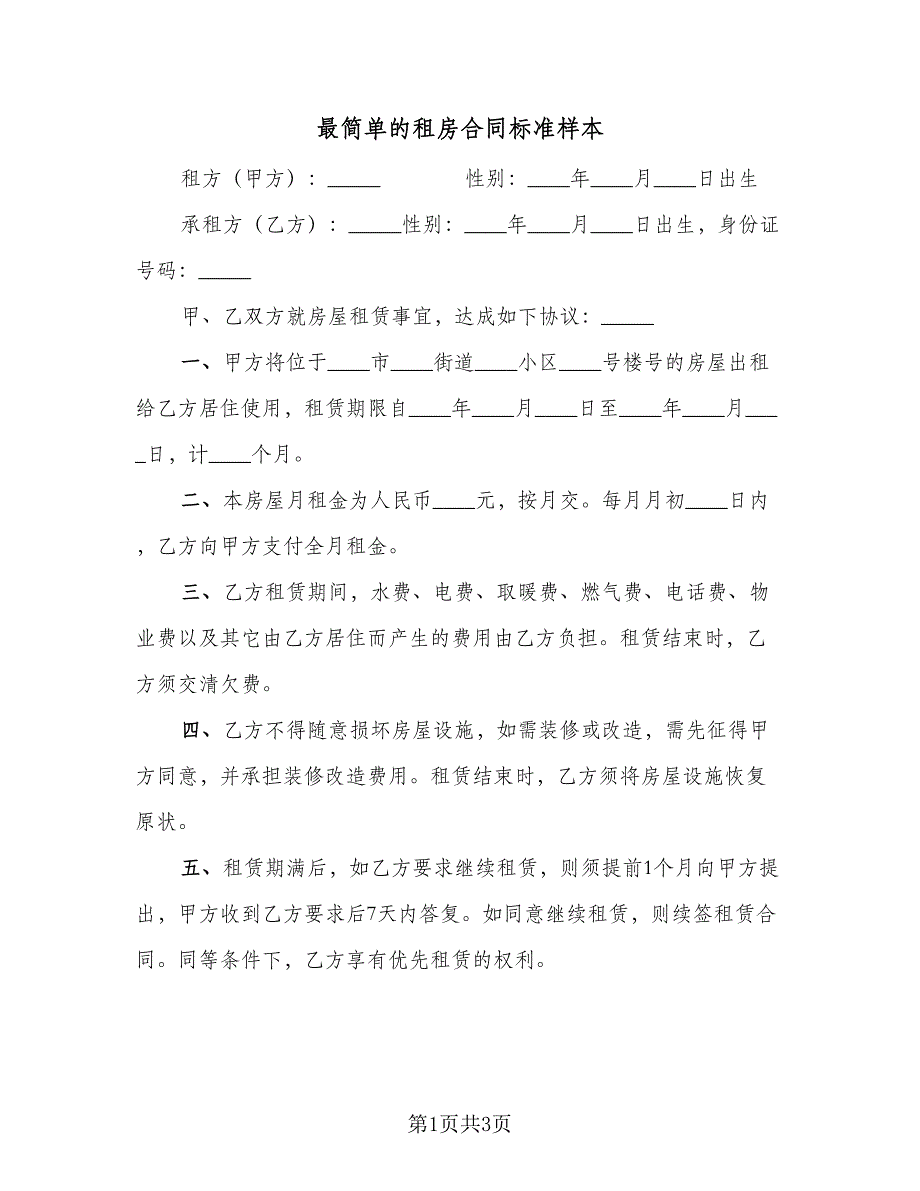 最简单的租房合同标准样本
租方（甲方）：_____　　　　性别：____年____月____日出生
承租方（乙方）：_____性别：____年____月____日出生，身份证
号码：_____
甲、乙双方就房屋租赁事宜，达成如下协议：_____
一、甲方将位于____市____街道____小区____号楼号的房屋出租
给乙方居住使用，租赁期限自____年____月____日至____年____月___
_日，计____个月。
二、本房屋月租金为人民币____元，按月交。每月月初____日内
，乙方向甲方支付全月租金。
三、乙方租赁期间，水费、电费、取暖费、燃气费、电话费、物
业费以及其它由乙方居住而产生的费用由乙方负担。租赁结束时，乙
方须交清欠费。
四、乙方不得随意损坏房屋设施，如需装修或改造，需先征得甲
方同意，并承担装修改造费用。租赁结束时，乙方须将房屋设施恢复
原状。
五、租赁期满后，如乙方要求继续租赁，则须提前1个月向甲方提
出，甲方收到乙方要求后7天内答复。如同意继续租赁，则续签租赁合
同。同等条件下，乙方享有优先租赁的权利。
第1页共3页